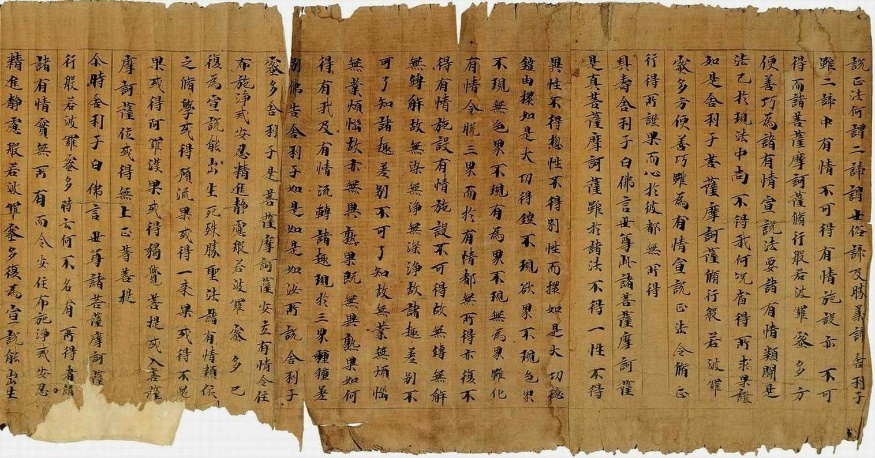 說正法何謂二諦謂世俗諦及勝義諦舍利子
雖二諦中有情不可得有情施設亦不可
得而諸菩薩摩訶薩脩行般若波羅蜜多方
便善巧為諸有情宣說法要諸有情類聞是
法已於現法中尚不得我何況當得所求果證
如是舍利子菩薩摩訶薩脩行般若波羅
蜜多方便善巧雖為有情宣說正法令脩正
行得所證果而心於彼都無所得
具壽舍利子白佛言世尊此諸菩薩摩訶薩
是真菩薩摩訶薩雖於諸法不得一性不得
異性不得總性不得別性而擐如是大功德
鎧由擐如是大功德鎧不現欲界不現色界
不現無色界不現有為界不現無為界雖化
有情令脫三界而於有情都無所得亦復不
得有情施設有情施設不可得故無縛無解
無縛解故無染無淨無染淨故諸趣差別不
可了知諸趣差別不可了知故無業無煩惱
無業煩惱故亦無異熟果既無異熟果如何
得有我及有情流轉諸趣現於三界種種差
別佛告舍利子如是如是如汝所說舍利子
蜜多舍利子是菩薩摩訶薩安立有情令住
布施淨戒安忍精進靜慮般若波羅蜜多已
復為宣說能出生死殊勝聖法諸有情類依
之脩學或得預流果或得一來果或得不還
果或得阿羅漢果或得獨覺菩提或入菩薩
摩訶薩位或得無上正等菩提
尒時舍利子白佛言世尊諸菩薩摩訶薩
行般若波羅蜜多時云何不名有所得者謂
諸有情實無所有而令安住布施淨戒安忍
精進靜慮般若波羅蜜多復為宣說能出生